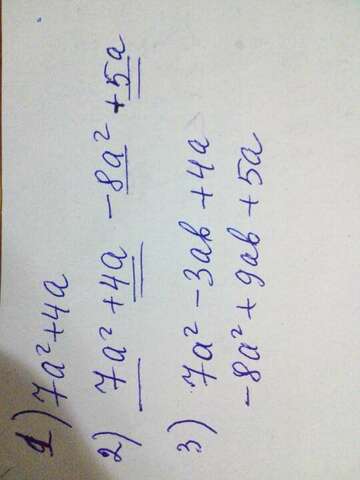 1) 7a² + 4a
2) 7a² + 4a - 8a² + 5a
3) 7a² - 3ab + 4a
- 8a² + 9ab + 5a